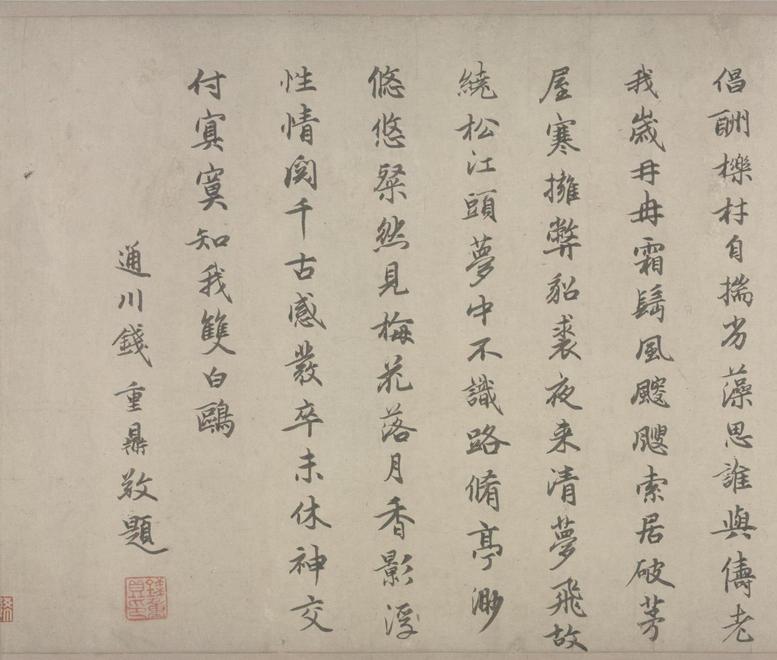 倡酬櫟村自揣劣藻思誰與儔老
我歲冉冉霜鬅風颼颼索居破茅
屋寒擁弊貂裘夜来清夢飛故
繞松江頭夢中不識路脩亭渺
悠悠粲然見梅花落月香影浮
性情閱千古感發卒未休神交
付寘寞知我雙白鷗
通川錢重鼎敬題